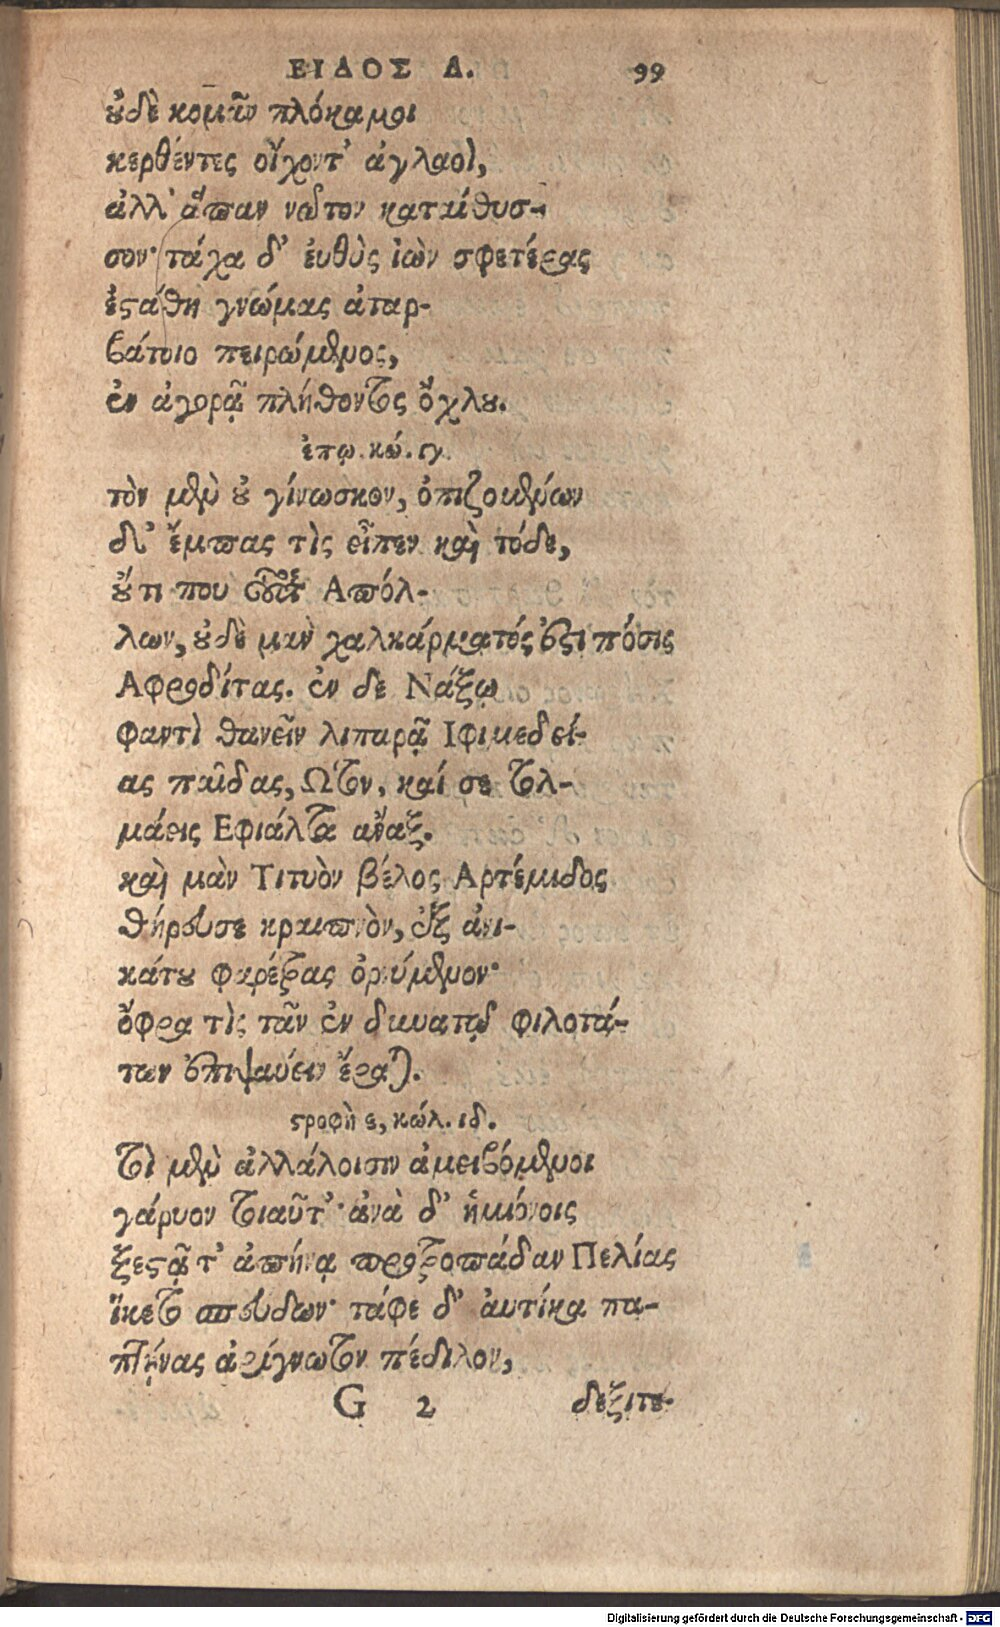 ΕΙΔΟΣ Δ. 99
ȣ̓δὲ κομᾶν πλόκαμοι
κερθέντες οἴχοντ' ἀγλαοὶ,
ἀλλ' ἅπαν νῶτον καταίθυσ-
σον· τάχα δ' ἐυθὺς ἰὼν σφετέρας
ἐϛάθη γνώμας ἀταρ-
βάτοιο πειρώμενος,
ἐν ἀγορᾷ πλήθοντος ὄχλȣ.
ἐπῳ. κώ. ιγ.
τὸν μὲν ȣ̓ γίνωσκον, ὀπιζομένων
δ' ἔμπας τὶς εἶπεν καὶ τόδε,
ȣ̓́τι που οὗτος Απόλ-
λων, ȣ̓δὲ μὰν χαλκάρματός ἐϛι πόσις
Αφροδίτας. ἐν δε Νάξῳ
φαντὶ θανεῖν λιπαρᾷ Ιφιμεδεί-
ας παῖδας, Ω῏τον, καί σε τολ-
μάεις Εφιάλτα ἄναξ.
καὶ μὰν Τιτυὸν βέλος Αρτέμιδος
θήρευσε κραιπνὸν, ἐξ ἀνι-
κάτȣ φαρέτρας ὀρνύμενον·
ὄφρα τὶς τᾶν ἐν δυνατῷ φιλοτά-
των ἐπιψαύειν ἔραται.
ϛροφὴ ε, κώλ. ιδ.
Τοὶ μὲν ἀλλάλοισιν ἀμειβόμενοι
γάρυον τοιαῦτ'· ἀνὰ δ' ἡμιόνοις
ξεϛᾷ τ' ἀπήνᾳ προτροπάδαν Πελίας
ἵκετο σπεύδων· τάφε δ' ἀυτίκα πα-
πτήνας ἀρίγνωτον πέδιλον,
G 2 δεξιτε-